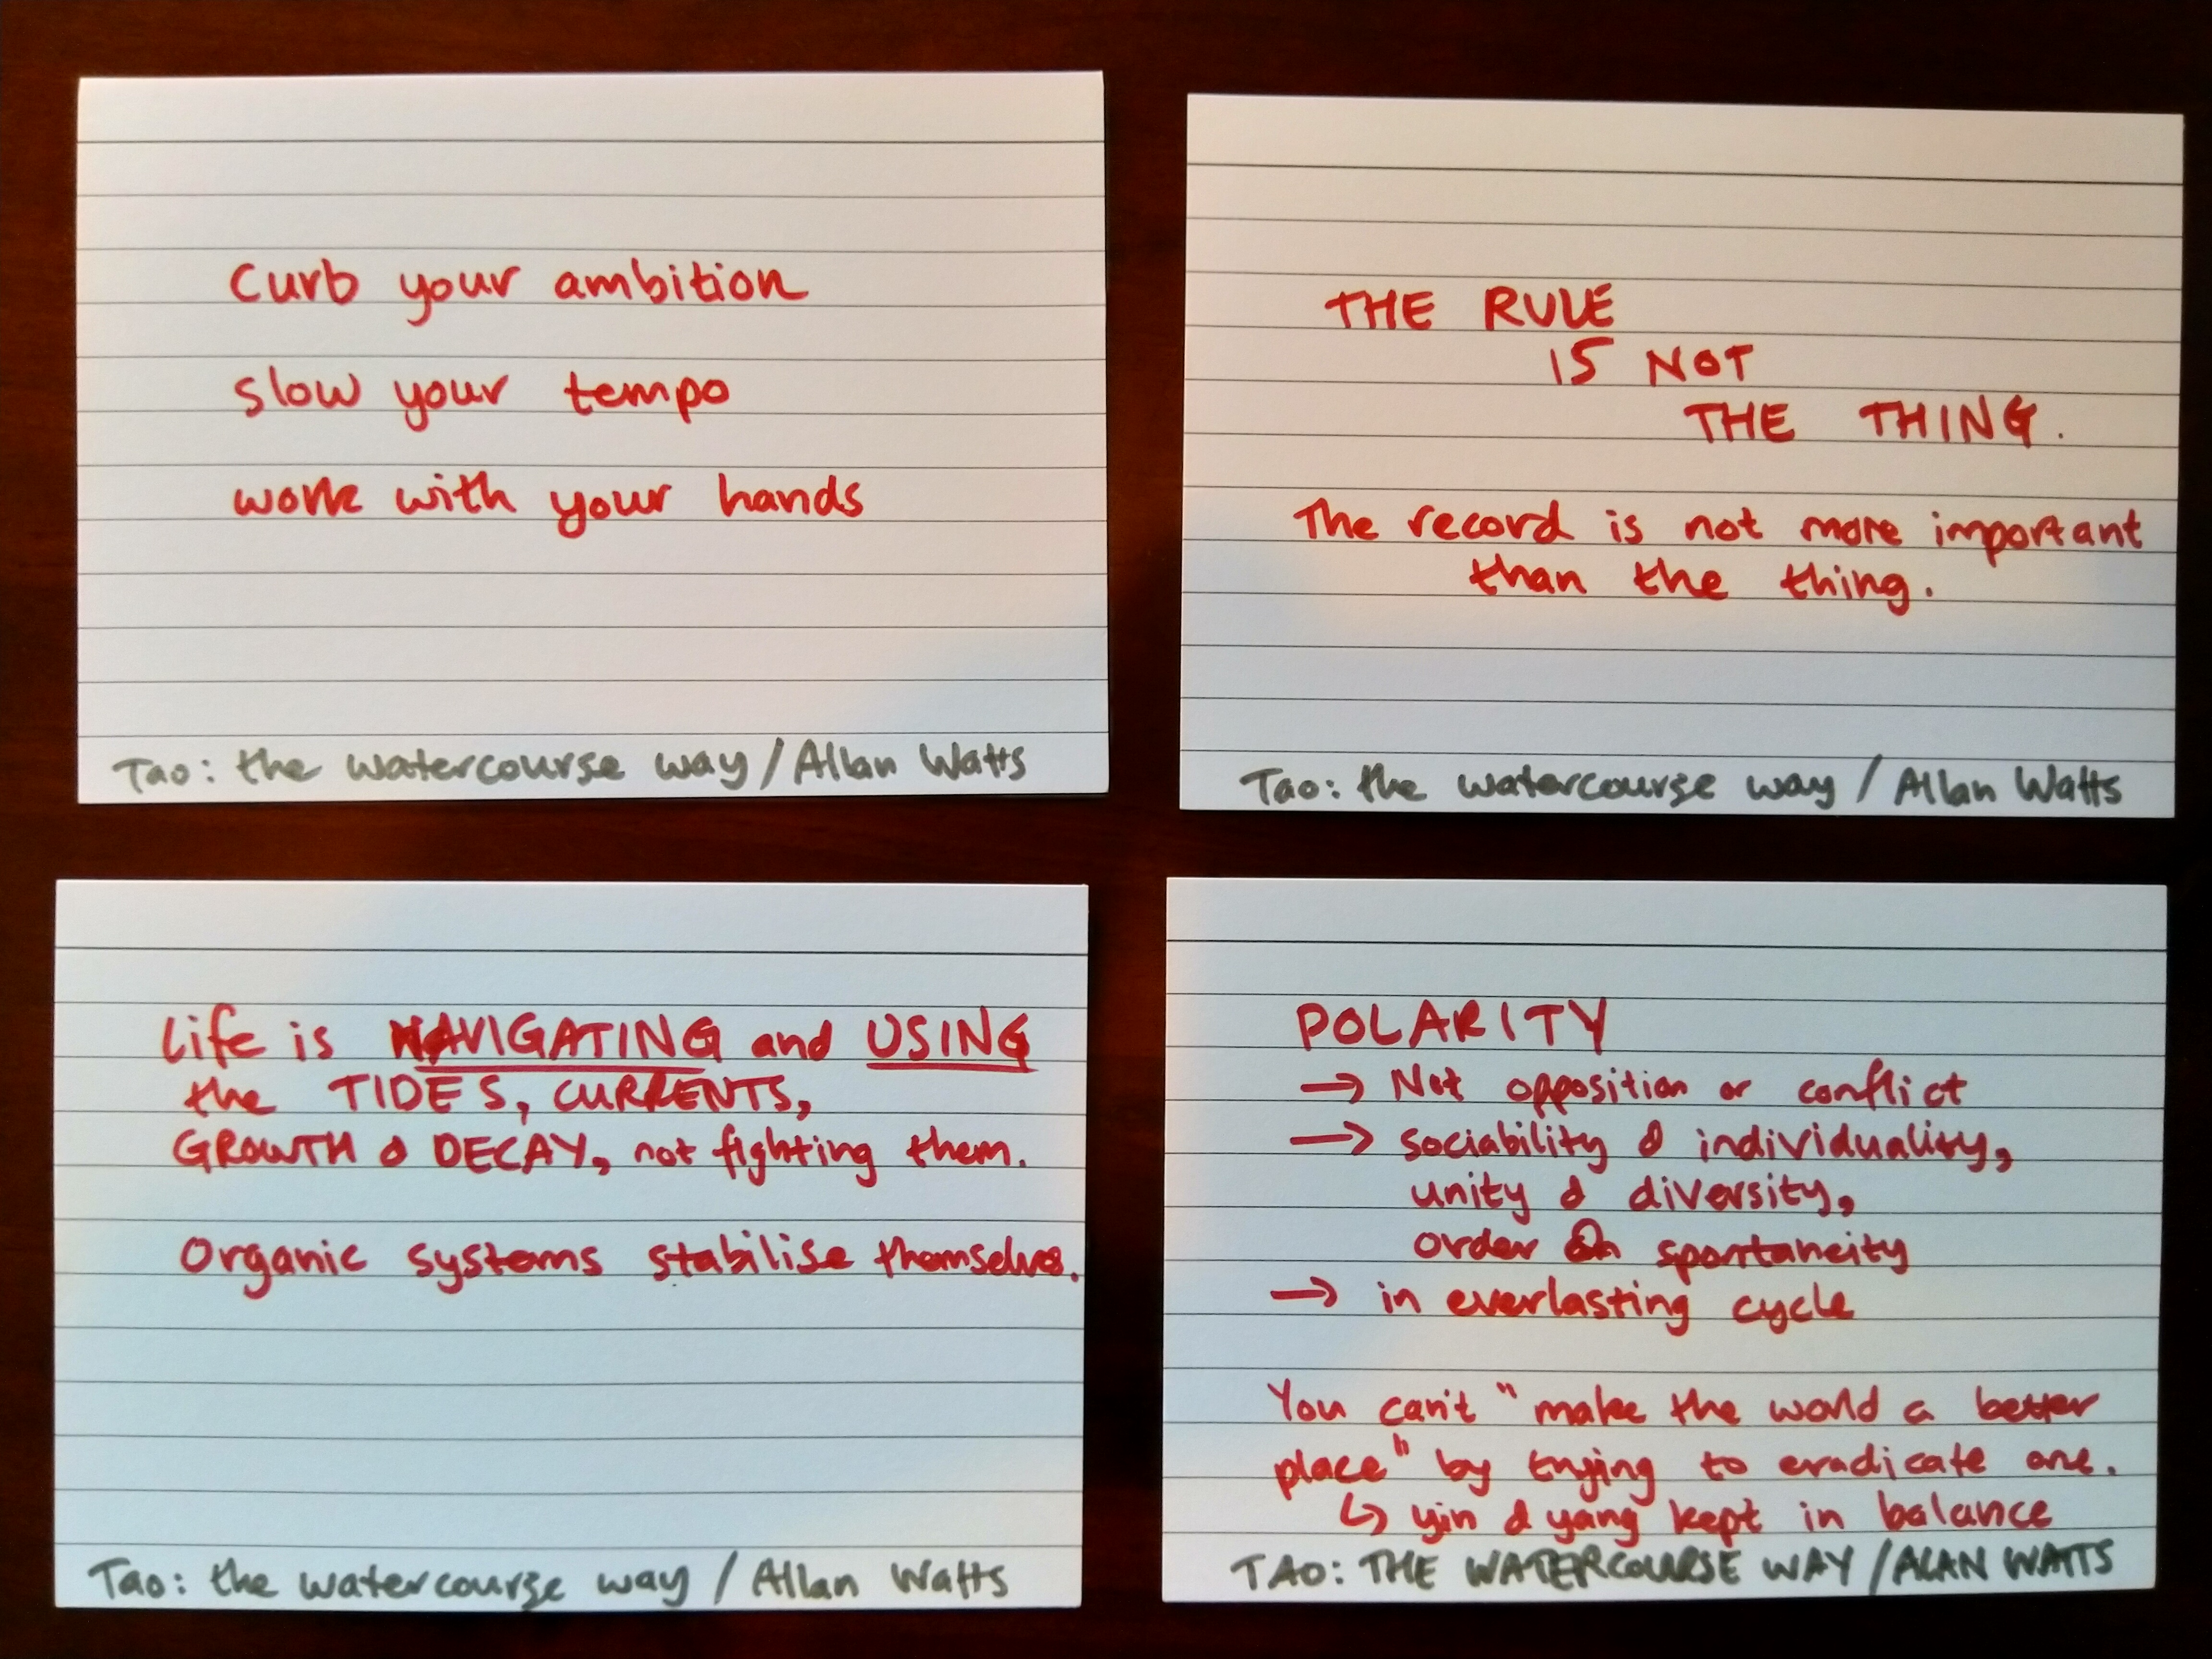 Curb your ambition
slow your tempo
work with your hands
Tao: the watercourse way / Allan Watts
THE RULE
IS NOT
THE THING.
The record is not more important
than the thing.
Tao: the watercourse way / Allan Watts
Life is NAVIGATING and USING
the TIDES, CURRENTS,
GROWTH & DECAY, not fighting them.
Organic systems stabilise themselves.
Tao: the watercourse way / Allan Watts
POLARITY
→ Not opposition or conflict
→ sociability & individuality,
unity & diversity,
order & spontaneity
→ in everlasting cycle
You can't "make the world a better
place" by trying to eradicate one.
↳ yin & yang kept in balance
TAO: THE WATERCOURSE WAY / ALAN WATTS